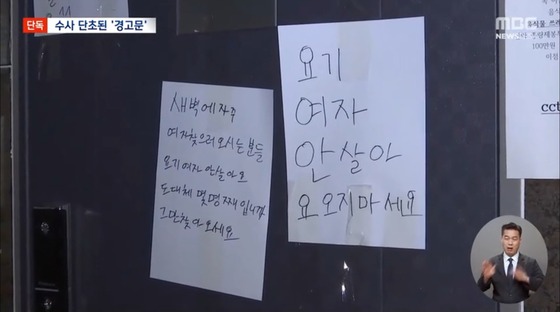 단독 수사 단초된 '경고문'
MBC
NEWS
새벽에 자주
여자찾으러 오시는 분들
요기 여자 안 살아요
도대체 몇명째 입니까
그만 찾아 오세요
요기
여자
안살아
요 오지마세요
100만원
cct